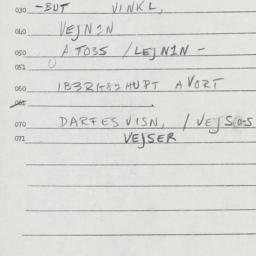 030 -BUT VINKL,
040 VEJNIN
050 A TO3S /LEJNIN -
051
060 A VORT
061
070 DARFES VISN, / VEJS
071 VEJSER